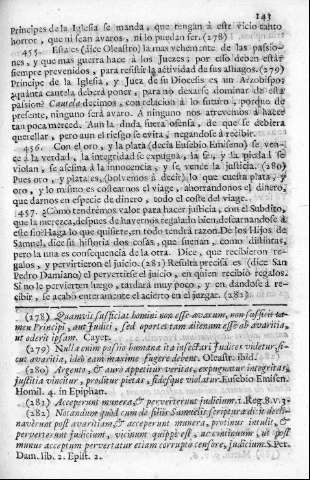 143
Principes de la Iglesia se manda, que tengan à este vicio tanto
horror, que ni sean avaros, ni lo puedan ser. (278)
455. Esta es (dice Oleastro) la mas vehemente de las passio-
nes, y que mas guerra hace à los Juezes; por esso deben estàr
siempre prevenidos, para resistir la actividad de sus assagos. (279)
Principe de la Iglesia, y Juez de su Diocesis es un Arzobispo;
quanta cautela deberà poner, para no dexarse dominar de esta
passion? Cautela decimos, con relacion à lo futuro, porque de
presente, ninguno serà avaro. A ninguno nos atrevemos à hacer
tan poca merced. Aun la duda fuera ofensa, de que se debiera
querellar, pero aun el riesgo se evita, negandose à recibir.
456. Con el oro, y la plata (decia Eusebio Emiseno) se ven-
ce à la verdad, la integridad se expugna, la fe, y la piedad se
violan, se assesina à la innocencia, y se vence la justicia. (280)
Pues oro, y plata es, (bolvemos à decir) lo que cuesta plata, y
oro, y lo mismo es costearnos el viage, ahorrandonos el dinero,
que darnos en especie de dinero, todo el coste del viage.
457. Còmo tendrèmos valor para hacer justicia, con el Subdito,
que la merezca, despues de havernos regalado bien, desfacarnandose à
este fin? Haga lo que quisiere, en todo tendrà razon. De los Hijos de
Samuel, dice su historia dos cosas, que suenan, como distintas,
pero la una es consequencia de la otra. Dice, que recibieron re-
galos, y pervirtieron el juicio. (281) Resulta precisa es (dice San
Pedro Damiano) el pervertirse el juicio, en quien recibiò regalos.
Si no le pervierten luego, tardarà muy poco, y en dandose à re-
cibir, se acabò enteramente el acierto en el juzgar. (282)
(278) Quamvis sufficiat homini non esse avarum, non sufficit ta-
men Principi, aut Judici, sed oportet tam alienum esse ab avaritia,
ut oderit ipsam. Cayet.
(279) Nulla enim passio humana ita insectari Judices videtur, si-
cut avaritia, ideò eam maximè fugere debent. Oleastr. ibid.
(280) Argento, & auro appetitur veritas, expugnatur integritas,
justitia vincitur, proditur pietas, fidesque violatur. Eusebio Emisen.
Homil. 4. in Epiphan.
(281) Acceperunt munera, & perverterunt judicium. 1. Reg. 8. v. 3.
(282) Notandum quòd cum de filiis Samuelis scriptura dicit decli-
naverunt post avaritiam, & acceperunt munera, protinus intulit, &
perverterunt judicium, vicinum quippe est, ac contiguum, ut post
munus acceptum pervertatur etiam corrupto censore, judicium. S. Pet.
Dam. lib. 2. Epist. 2.